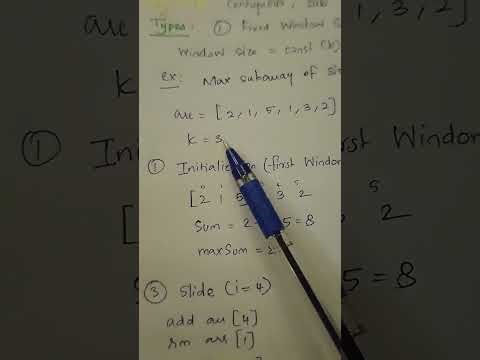 Contiguous, sub
Types: ① Fixed Window S
Window size = const (k)
Ex: Max subarray of si
arr = [2, 1, 5, 1, 3, 2]
K = 3
① Initialization (first Window
0 1 4 5
[2 1 5 3 2
Sum = 2 5 = 8
maxSum =
③ Slide (i=4)
add arr[4]
rm arr[1]